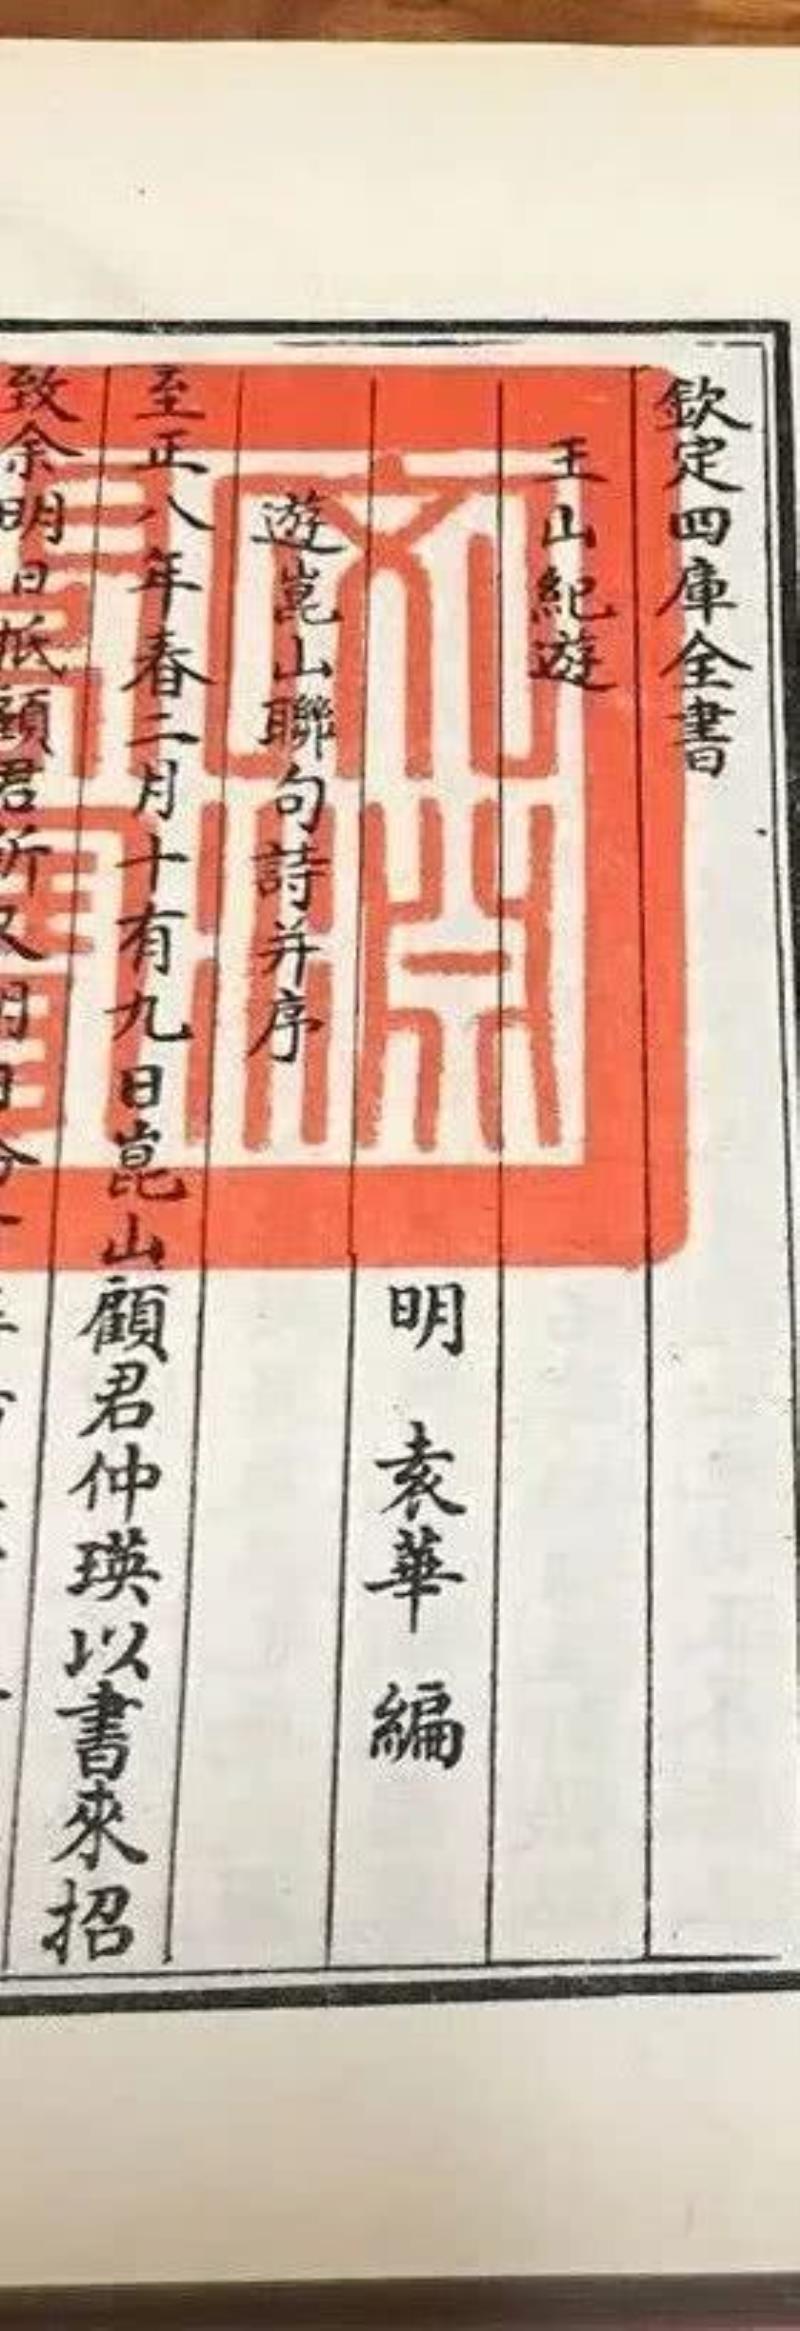 欽定四庫全書
玉山紀遊
明 袁華 編
遊崑山聯句詩并序
至正八年春二月十有九日崑山顧君仲瑛以書來招
致余明日抵顧君所又明日